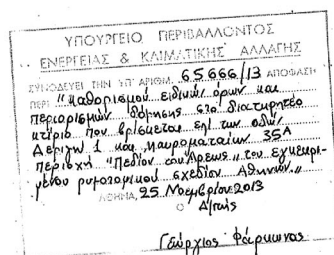 ΥΠΟΥΡΓΕΙΟ ΠΕΡΙΒΑΛΛΟΝΤΟΣ
ΕΝΕΡΓΕΙΑΣ & ΚΛΙΜΑΤΙΚΗΣ ΑΛΛΑΓΗΣ
ΣΥΝΟΔΕΥΕΙ ΤΗΝ ΥΠ' ΑΡΙΘΜ. 65666/13 ΑΠΟΦΑΣΗ
ΠΕΡΙ "καθορισμού ειδικών όρων και
περιορισμών δόμησης στο διατηρητέο
κτίριο που βρίσκεται επί των οδών
Δεριγνύ 1 και Μαυρομματαίων 35Α
περιοχή "Πεδίον του Άρεως", του εγκεκρι-
μένου ρυμοτομικού σχεδίου Αθηνών"
ΑΘΗΝΑ, 25 Νοεμβρίου 2013
Ο
Γεώργιος